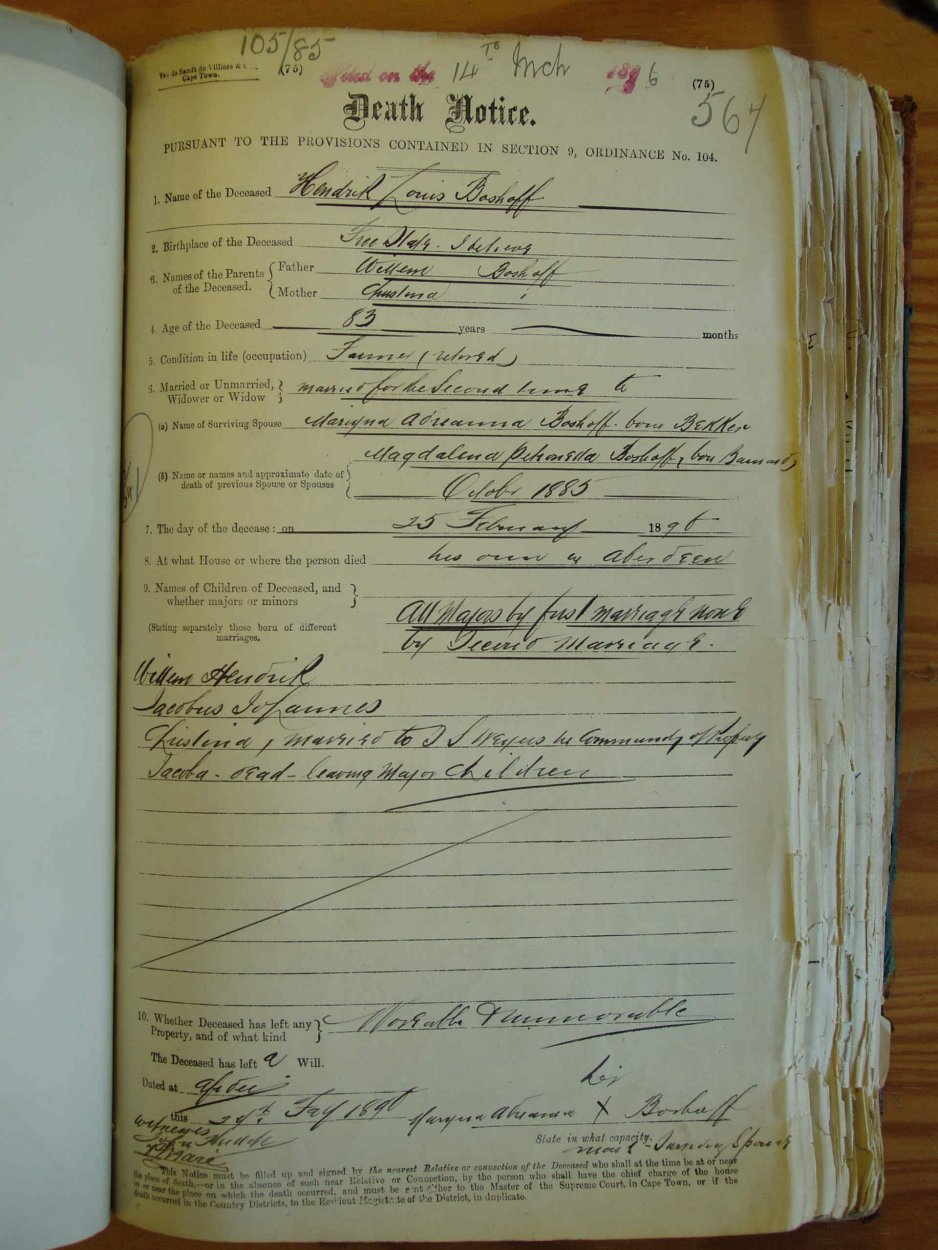 105/85
Van de Sandt de Villiers & C
Cape Town.
(75) Filed on the 14 th Mch 1896 (75)
567
Death Notice.
PURSUANT TO THE PROVISIONS CONTAINED IN SECTION 9, ORDINANCE No. 104.
1. Name of the Deceased Hendrik Louis Boshoff
2. Birthplace of the Deceased Free State I believe
3. Names of the Parents of the Deceased. { Father Willem Boshoff
{ Mother Christina "
4. Age of the Deceased 83 years months
5. Condition in life (occupation) Farmer (retired)
6. Married or Unmarried, Widower or Widow } married for the Second time to
(a) Name of Surviving Spouse Maryna Adreanna Boshoff born Bekker
Magdalena Petronella Boshoff, born Barnard
(b) Name or names and approximate date of death of previous Spouse or Spouses { October 1885
7. The day of the decease: on 25 February 1896
8. At what House or where the person died his own in Aberdeen
9. Names of Children of Deceased, and whether majors or minors }
(Stating separately those born of different marriages.
All Majors by first marriage none
by Second Marriage.
Willem Hendrik
Jacobus Johannes
Kristina, married to in Community of Property
Jacoba - dead - leaving Major Children
10. Whether Deceased has left any Property, and of what kind } Moveable & Immovable
The Deceased has left a Will.
Dated at
this 27th 1896 Maryna Adreanna X Boshoff
her
witnesses
State in what capacity. Surviving Spouse
This Notice must be filled up and signed by the nearest Relative or connection of the Deceased who shall at the time be at or near
the place of death,—or in the absence of such near Relative or Connection, by the person who shall have the chief charge of the house
in or near the place on which the death occurred, and must be sent either to the Master of the Supreme Court, in Cape Town, or if the
death occurred in the Country Districts, to the Resident Magistrate of the District, in duplicate.